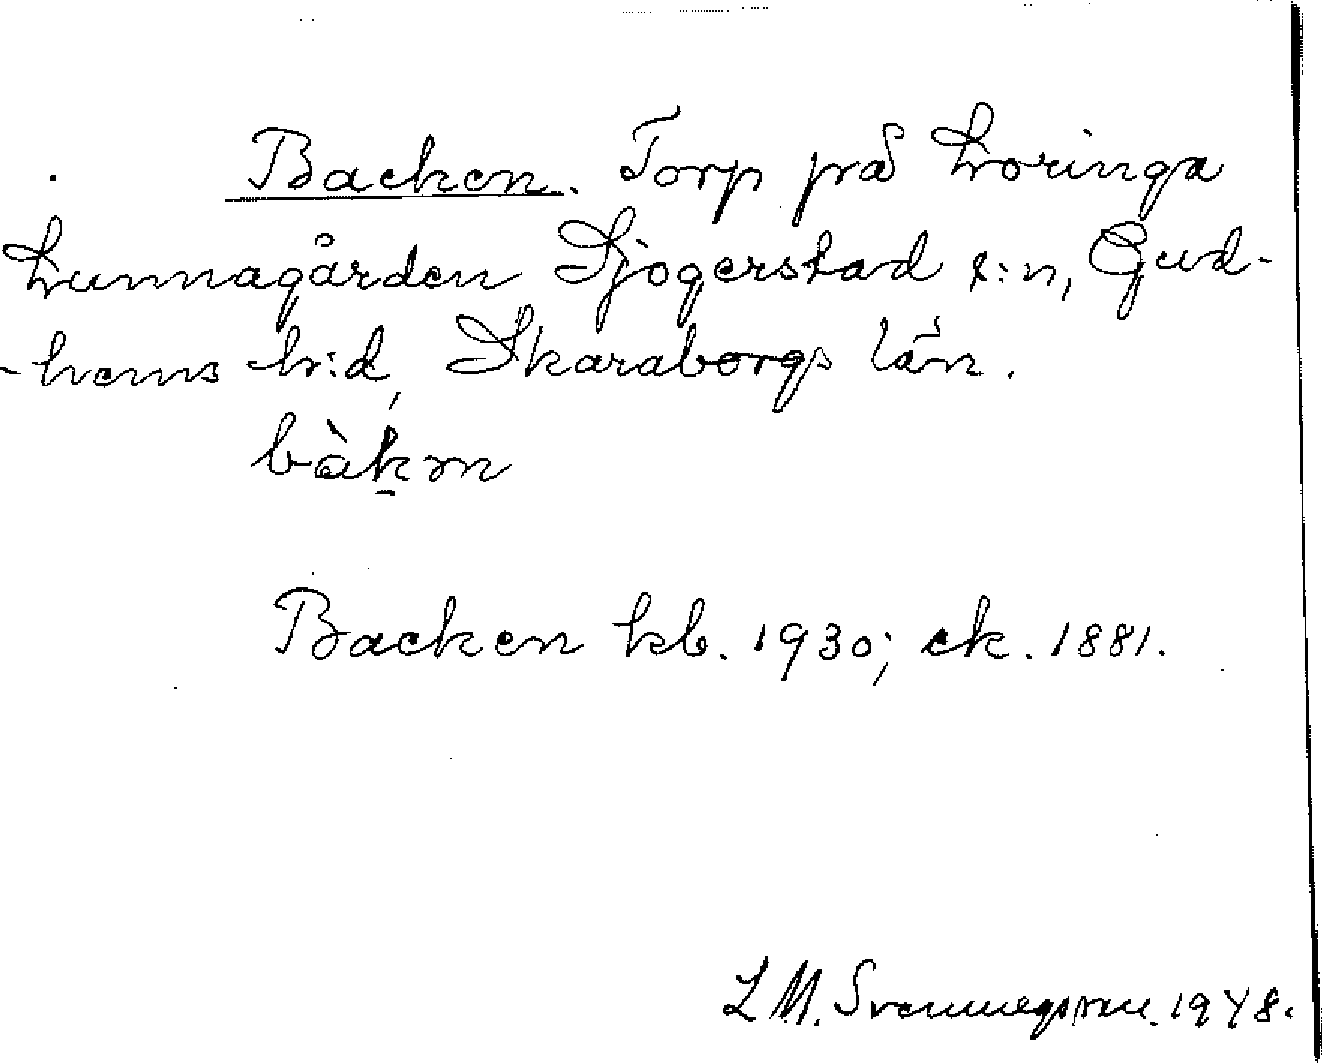 Backen. Torp på Loringa
Lunnagården Sjogerstad s:n, Gud-
-hems h:d, Skaraborgs län.
bàkm
Backen kb. 1930; ek. 1881.
L M. Svenungsson. 1948.